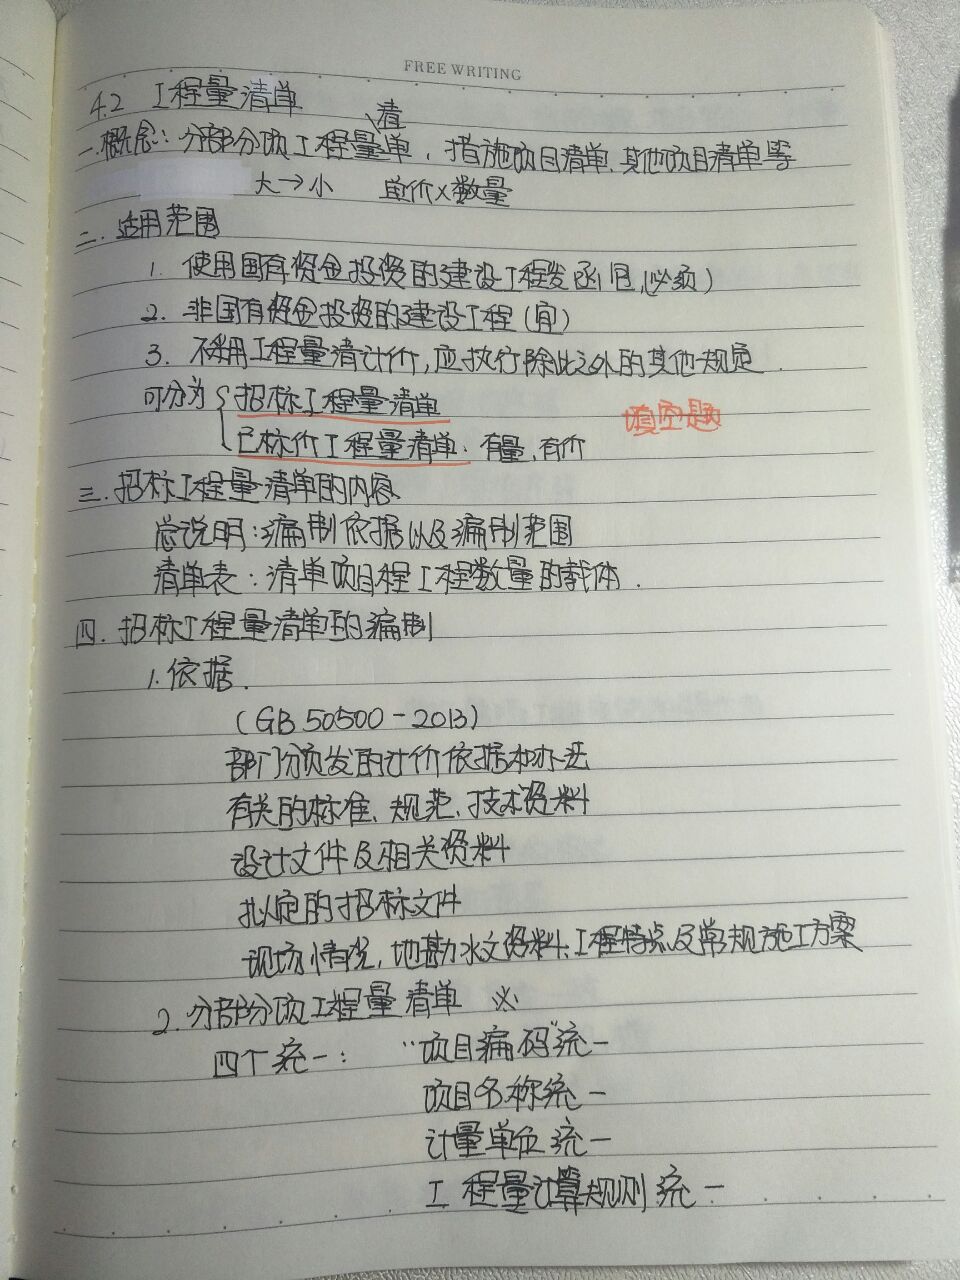 FREE WRITING
4.2 工程量清单
一.概念:分部分项工程量清单、措施项目清单.其他项目清单等
大→小 单价×数量
二.适用范围
1. 使用国有资金投资的建设工程发函包(必须)
2. 非国有资金投资的建设工程(宜)
3. 不采用工程量清计价,应执行除此之外的其他规定.
可分为{招标工程量清单 填空题
已标价工程量清单. 有量,有价
三.招标工程量清单的内容
总说明:编制依据以及编制范围
清单表:清单项目程工程数量的载体.
四.招标工程量清单的编制
1.依据.
(GB 50500-2013)
部门颁发的计价依据和办法
有关的标准、规范、技术资料
设计文件及相关资料
拟定的招标文件
现场情况,地勘水文资料、工程特点及常规施工方案
2.分部分项工程量清单 ※
四个统一: "项目编码"统一
项目名称统一
计量单位统一
工程量计算规则统一